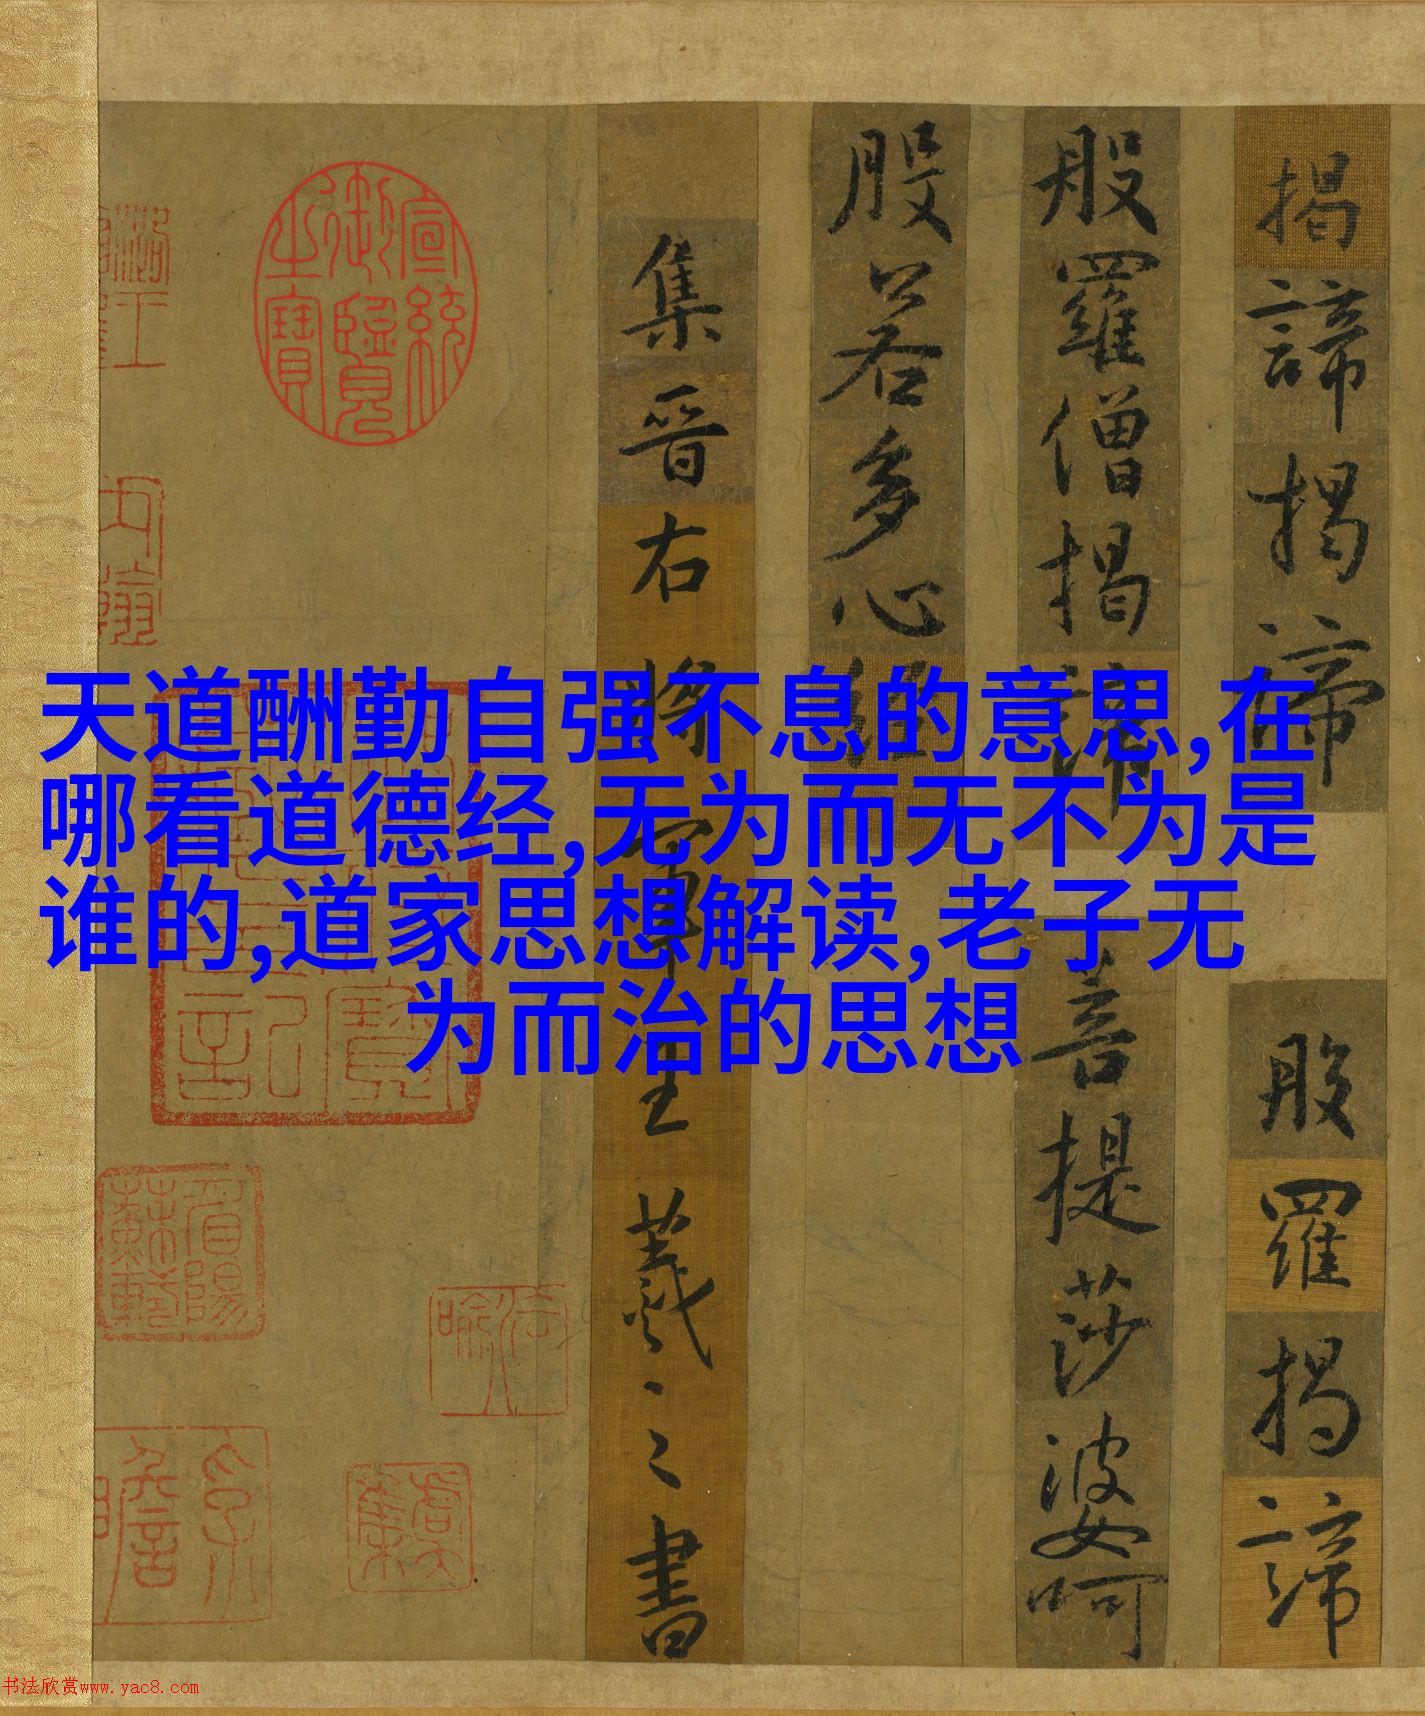 天道酬勤自强不息的意思,在
哪看道德经,无为而无不为是
谁的,道家思想解读,老子无
为而治的思想
揭諦揭諦 般羅揭諦
般羅僧揭諦 菩提莎婆呵
般若多心經
集晉右將軍王羲之書
宣統御覽之寶
书法欣赏www.yac8.com